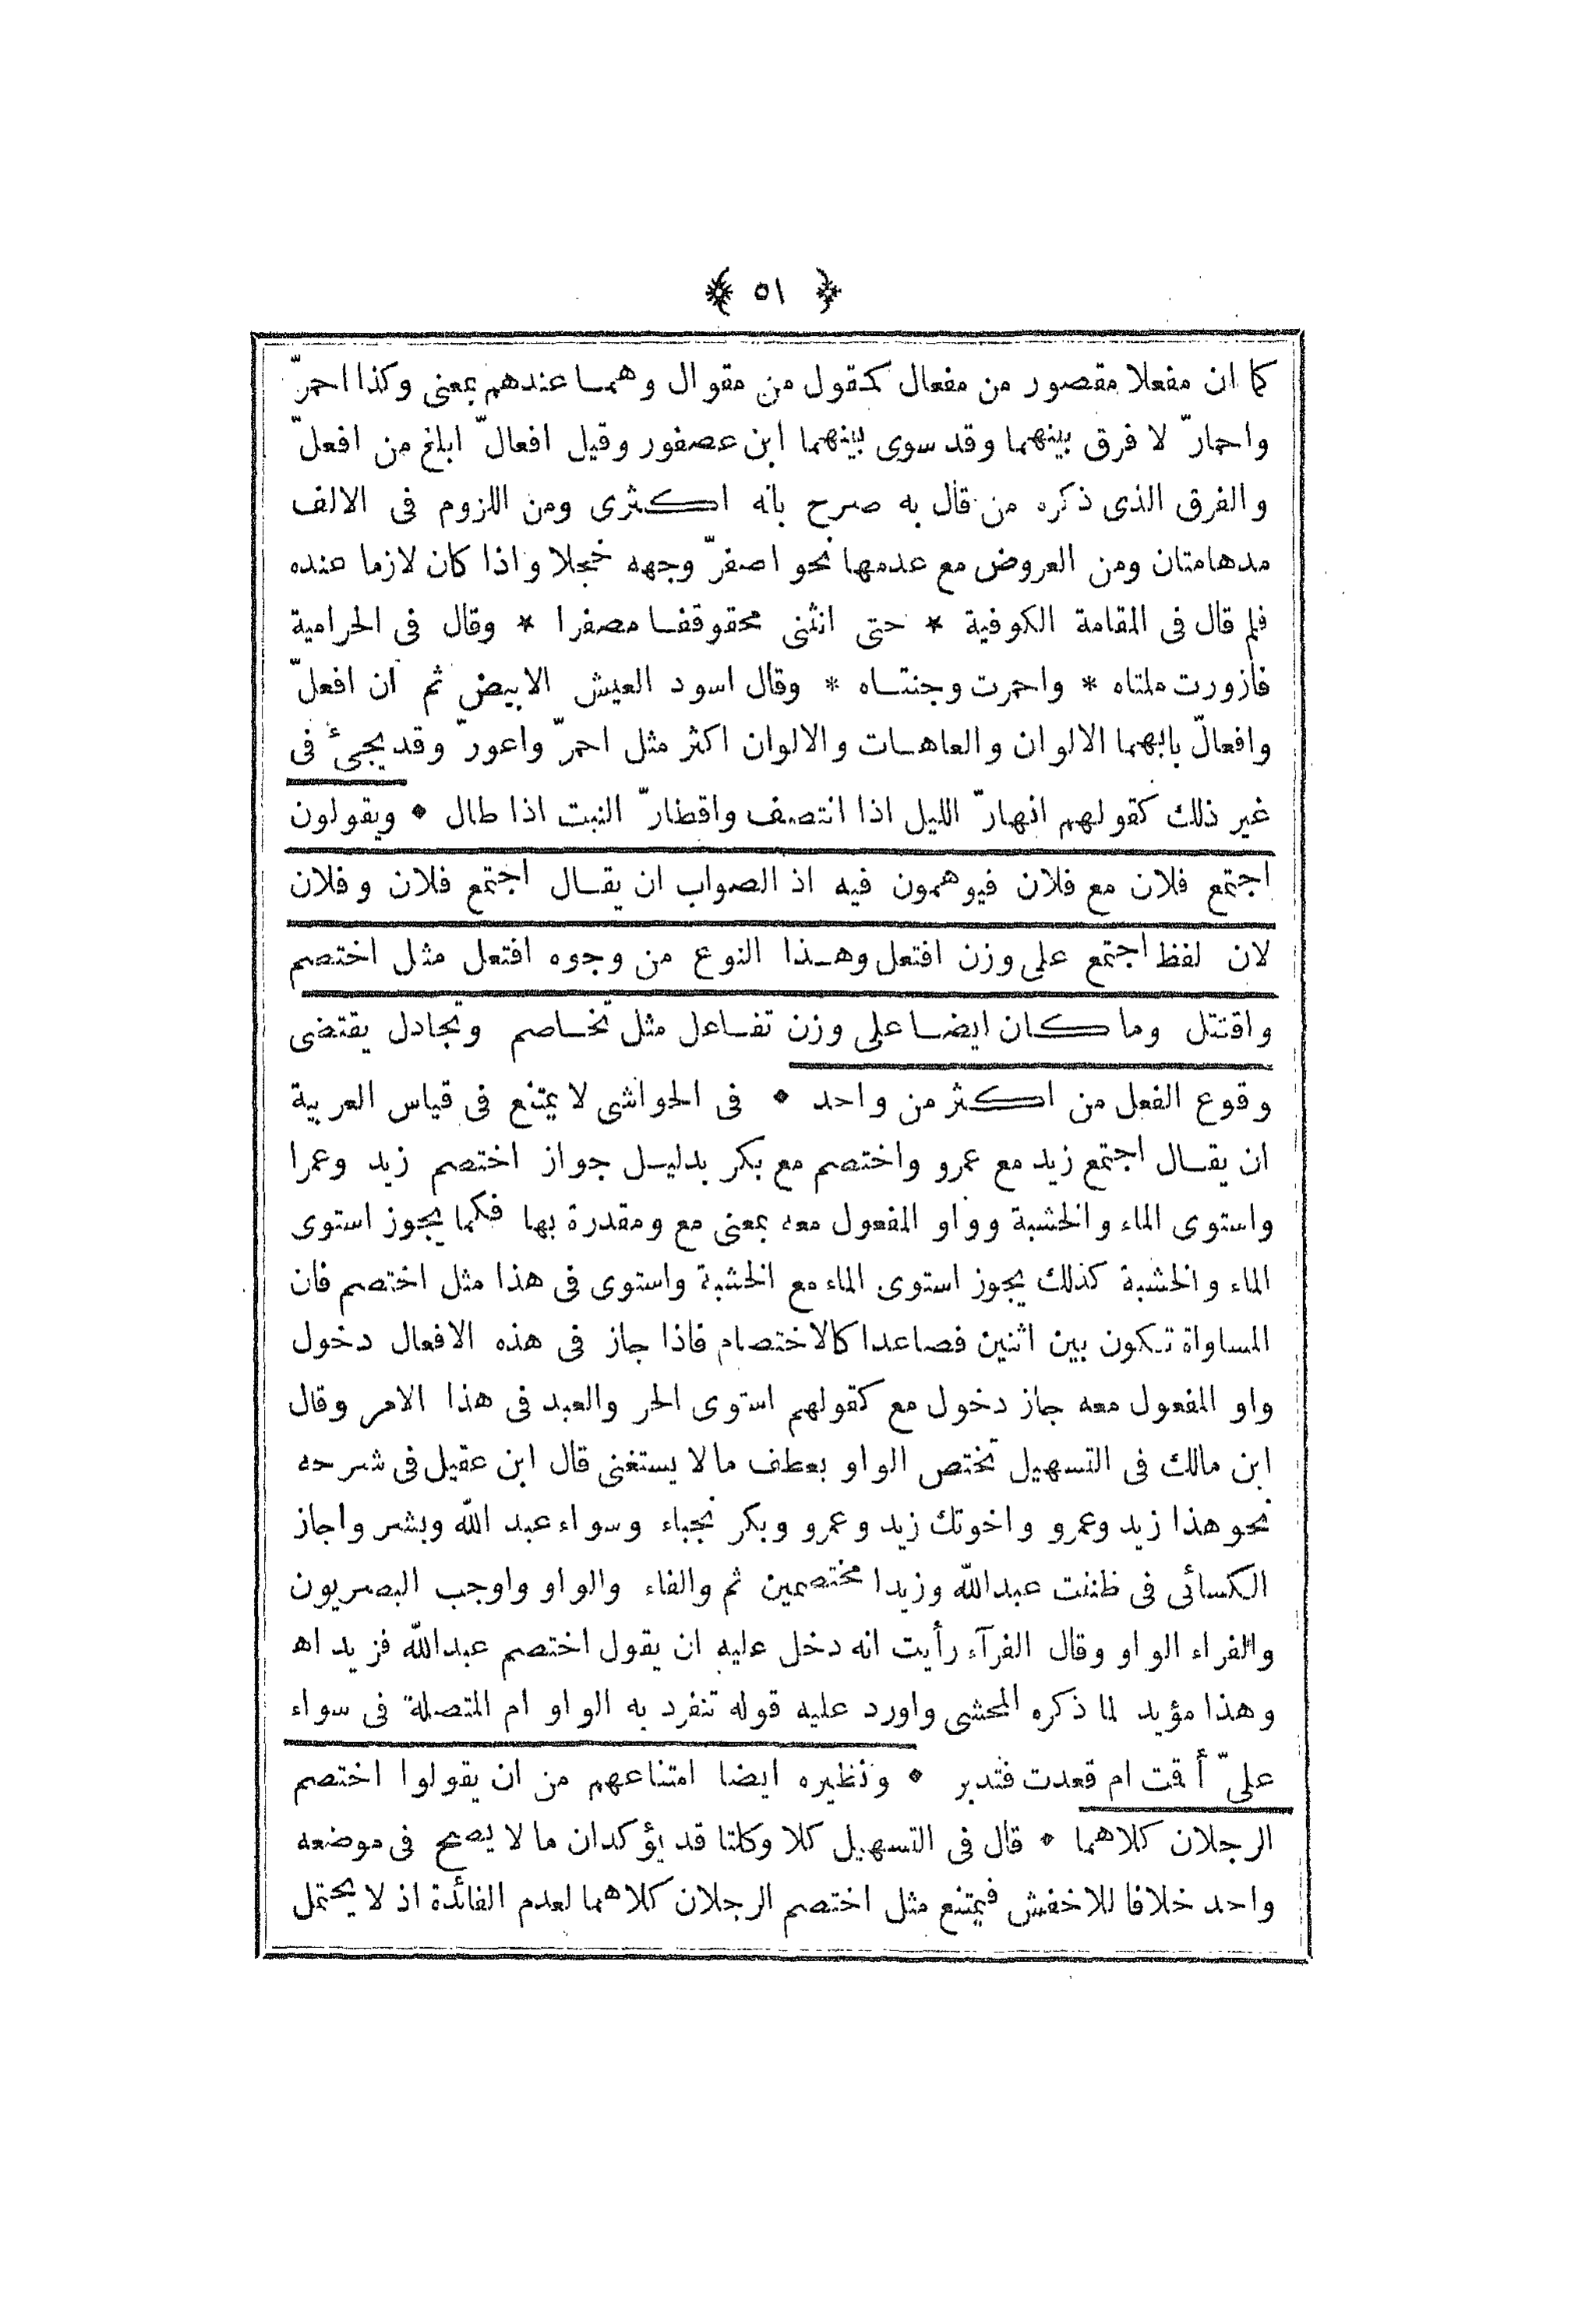 ﴿ ٥١ ﴾
كما ان مفعلا مقصور من مفعال كمقول من مقوال وهما عندهم بمعنى وكذا احمرّ
واحمارّ لا فرق بينهما وقد سوى بينهما ابن عصفور وقيل افعالّ ابلغ من افعلّ
والفرق الذى ذكره من قال به صرح بانه اكثرى ومن اللزوم فى الالف
مدهامتان ومن العروض مع عدمها نحو اصفرّ وجهه خجلا واذا كان لازما عنده
فلم قال فى المقامة الكوفية * حتى انثنى محقوقفا مصفرا * وقال فى الحرامية
فازورت مقلتاه * واحمرت وجنتاه * وقال اسود العيش الابيض ثم ان افعلّ
وافعالّ بابهما الالوان والعاهات والالوان اكثر مثل احمرّ واعورّ وقد يجئ فى
غير ذلك كقولهم انهارّ الليل اذا انتصف واقطارّ النبت اذا طال * ويقولون
اجتمع فلان مع فلان فيوهمون فيه اذ الصواب ان يقال اجتمع فلان وفلان
لان لفظ اجتمع على وزن افتعل وهذا النوع من وجوه افتعل مثل اختصم
واقتتل وما كان ايضا على وزن تفاعل مثل تخاصم وتجادل يقتضى
وقوع الفعل من اكثر من واحد * فى الحواشى لا يمتنع فى قياس العربية
ان يقال اجتمع زيد مع عمرو واختصم مع بكر بدليل جواز اختصم زيد وعمرا
واستوى الماء والخشبة وواو المفعول معه بمعنى مع ومقدرة بها فكما يجوز استوى
الماء والخشبة كذلك يجوز استوى الماء مع الخشبة واستوى فى هذا مثل اختصم فان
المساواة تكون بين اثنين فصاعدا كالاختصام فاذا جاز فى هذه الافعال دخول
واو المفعول معه جاز دخول مع كقولهم استوى الحر والعبد فى هذا الامر وقال
ابن مالك فى التسهيل تختص الواو بعطف مالا يستغنى قال ابن عقيل فى شرحه
نحو هذا زيد وعمرو واخوتك زيد وعمرو وبكر نجباء وسواء عبد اللّه وبشر واجاز
الكسائى فى ظننت عبداللّه وزيدا مختصمين ثم والفاء والواو واوجب البصريون
والفراء الواو وقال الفرآء رأيت انه دخل عليه ان يقول اختصم عبداللّه فزيد اه
وهذا مؤيد لما ذكره المحشى واورد عليه قوله تنفرد به الواو ام المتصلة فى سواء
علىّ أقت ام قعدت فتدبر * ونظيره ايضا امتناعهم من ان يقولوا اختصم
الرجلان كلاهما * قال فى التسهيل كلا وكلتا قد يؤكدان ما لا يصح فى موضعه
واحد خلافا للاخفش فيمتنع مثل اختصم الرجلان كلاهما لعدم الفائدة اذ لا يحتمل